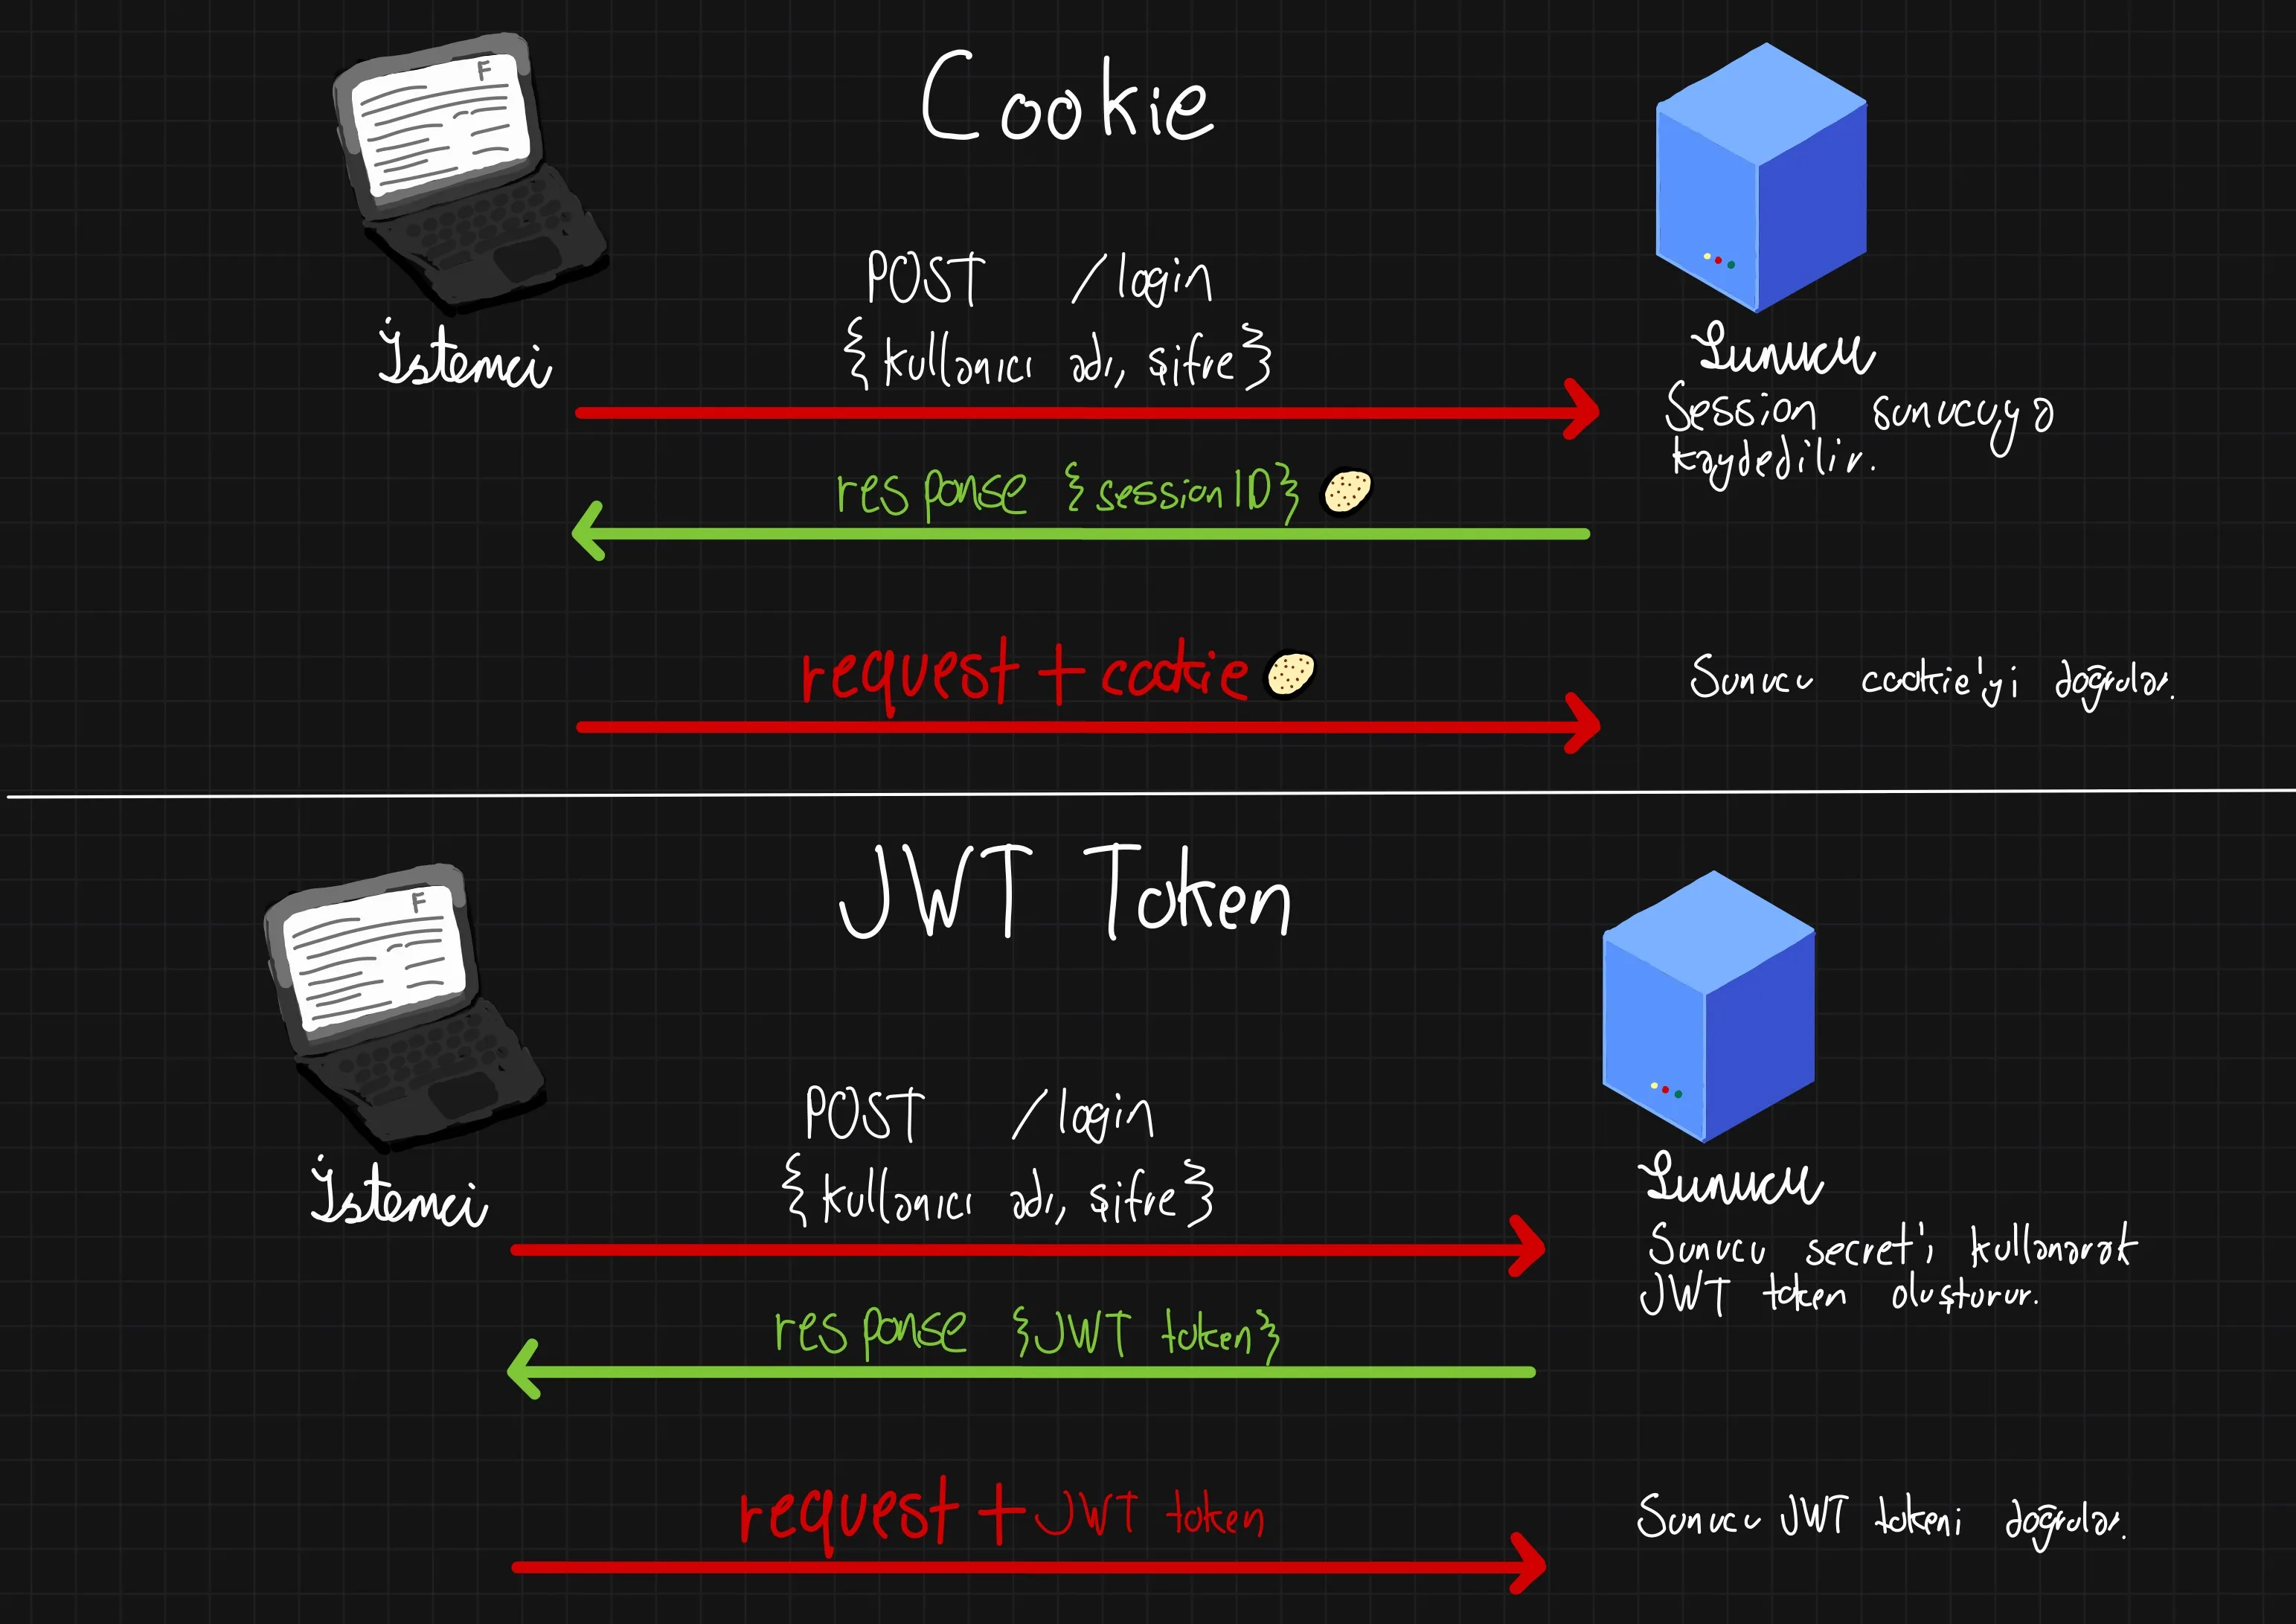 F
Cookie
POST /login
{kullanıcı adı, şifre}
İstemci
Sunucu
Session sunucuya
kaydedilir.
response {sessionID}
request + cookie
Sunucu cookie'yi doğrular.
JWT Token
F
POST /login
{kullanıcı adı, şifre}
İstemci
Sunucu
Sunucu secret'ı kullanarak
JWT token oluşturur.
response {JWT token}
request + JWT token
Sunucu JWT tokeni doğrular.